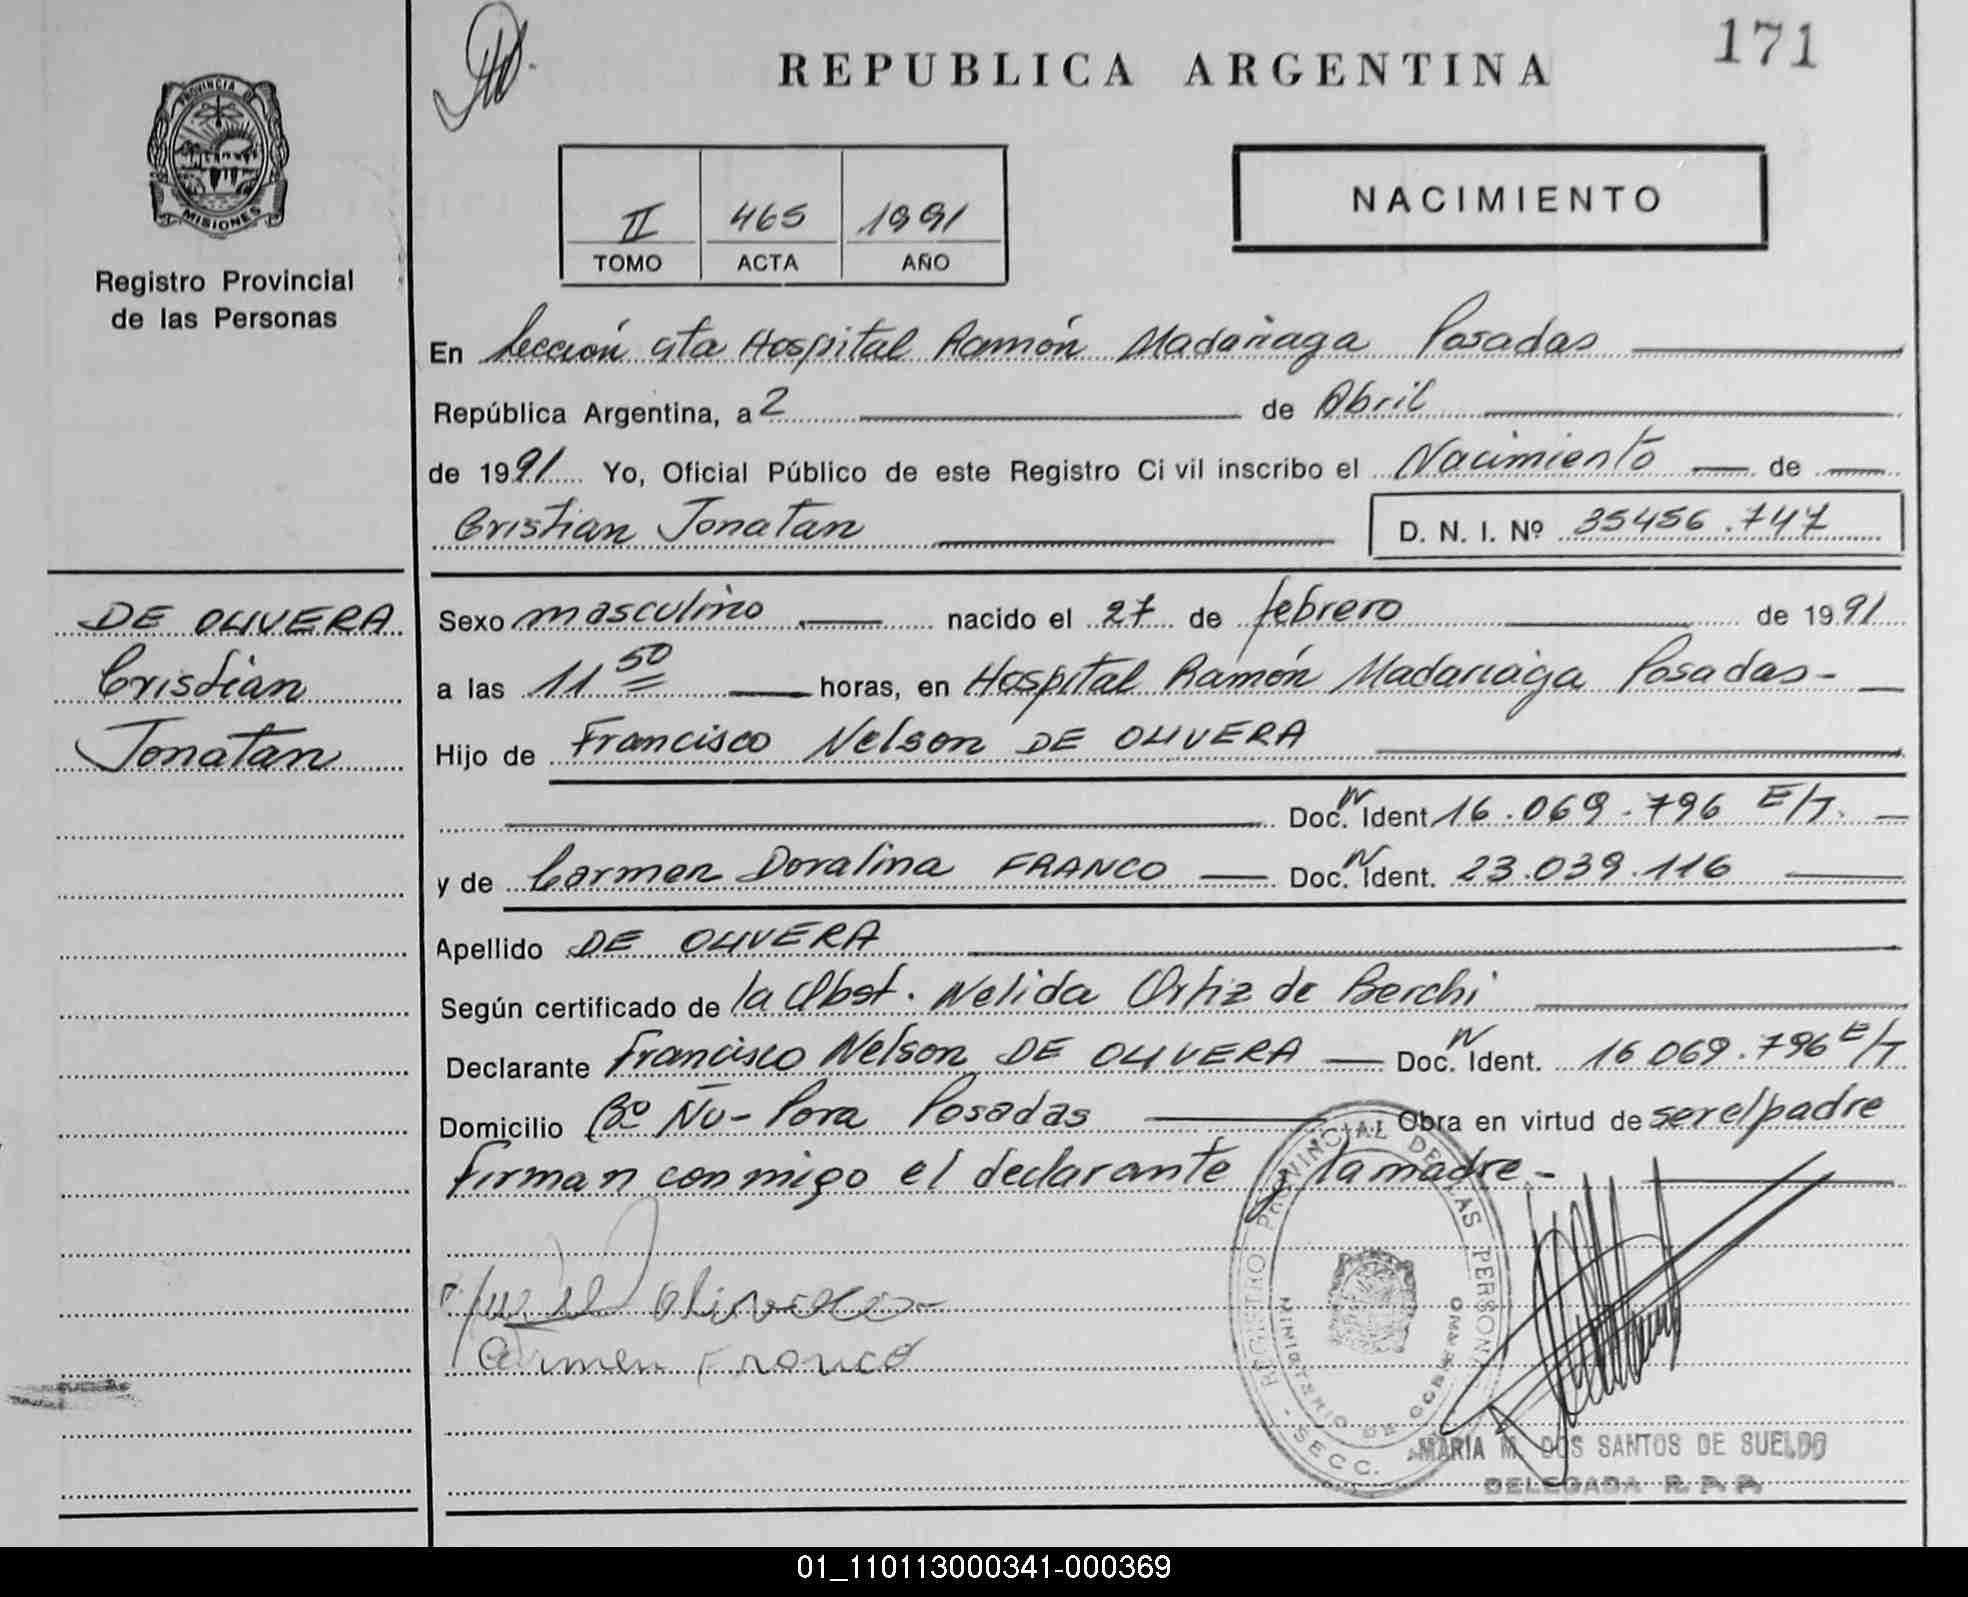 171
REPUBLICA ARGENTINA
PROVINCIA DE
MISIONES
Registro Provincial
de las Personas
II 465 1991
TOMO ACTA AÑO
NACIMIENTO
En Sección 4ta Hospital Ramón Madariaga Posadas
República Argentina, a 2 de Abril
de 1991 Yo, Oficial Público de este Registro Ci vil inscribo el Nacimiento de
Cristian Jonatan D. N. I. Nº 35456.747
DE OLIVERA
Cristian
Jonatan
Sexo masculino nacido el 27 de febrero de 1991
a las 11 50 horas, en Hospital Ramón Madariaga Posadas-
Hijo de Francisco Nelson DE OLIVERA
Doc. N Ident 16.069.796 E/T.
y de Carmen Doralina FRANCO Doc. N Ident. 23.039.116
Apellido DE OLIVERA
Según certificado de la Obst. Nelida Ortiz de Berchi
Declarante Francisco Nelson DE OLIVERA Doc. N Ident. 16 069.796 E/T
Domicilio Bº Ñu-Pora Posadas Obra en virtud de ser el padre
firman conmigo el declarante y la madre-
Carmen Franco
REGISTRO PROVINCIAL DE LAS PERSONAS
MINISTERIO DE GOBIERNO
SECC.
MARIA M. DOS SANTOS DE SUELDO
DELEGADA R. P. P.
01_110113000341-000369